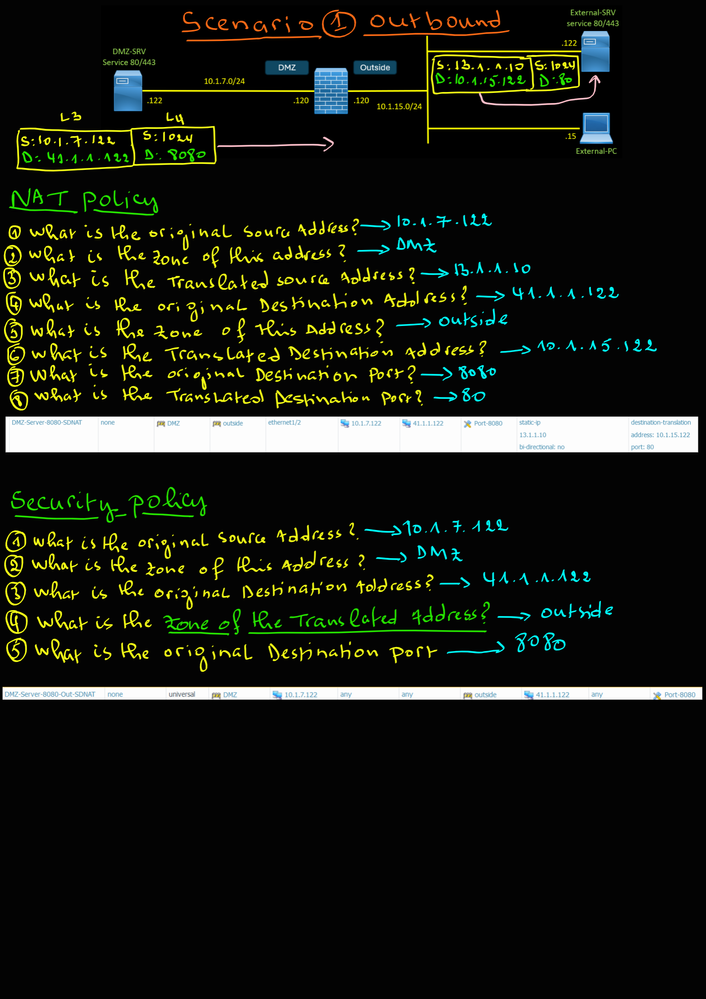 Scenario ① outbound
External-SRV
service 80/443
DMZ-SRV
Service 80/443
.122
DMZ
Outside
S: 13.1.1.10 S: 1024
D: 10.1.15.122 D: 80
10.1.7.0/24
.122
.120
.120
10.1.15.0/24
L3 L4
S: 10.1.7.122 S: 1024
D: 41.1.1.122 D: 8080
.15
External-PC
NAT policy
① what is the original source Address? → 10.1.7.122
② what is the zone of this address? → DMZ
③ what is the Translated source Address? → 13.1.1.10
④ what is the original Destination Address? → 41.1.1.122
⑤ what is the zone of this Address? → outside
⑥ what is the Translated Destination Address? → 10.1.15.122
⑦ What is the original Destination Port? → 8080
⑧ what is the Translated Destination Port? → 80
DMZ-Server-8080-SDNAT none DMZ outside ethernet1/2 10.1.7.122 41.1.1.122 Port-8080 static-ip destination-translation
13.1.1.10 address: 10.1.15.122
bi-directional: no port: 80
Security policy
① what is the original source Address? → 10.1.7.122
② what is the zone of this Address? → DMZ
③ what is the original Destination Address? → 41.1.1.122
④ what is the zone of the Translated Address? → outside
⑤ what is the original Destination port → 8080
DMZ-Server-8080-Out-SDNAT none universal DMZ 10.1.7.122 any any outside 41.1.1.122 any Port-8080